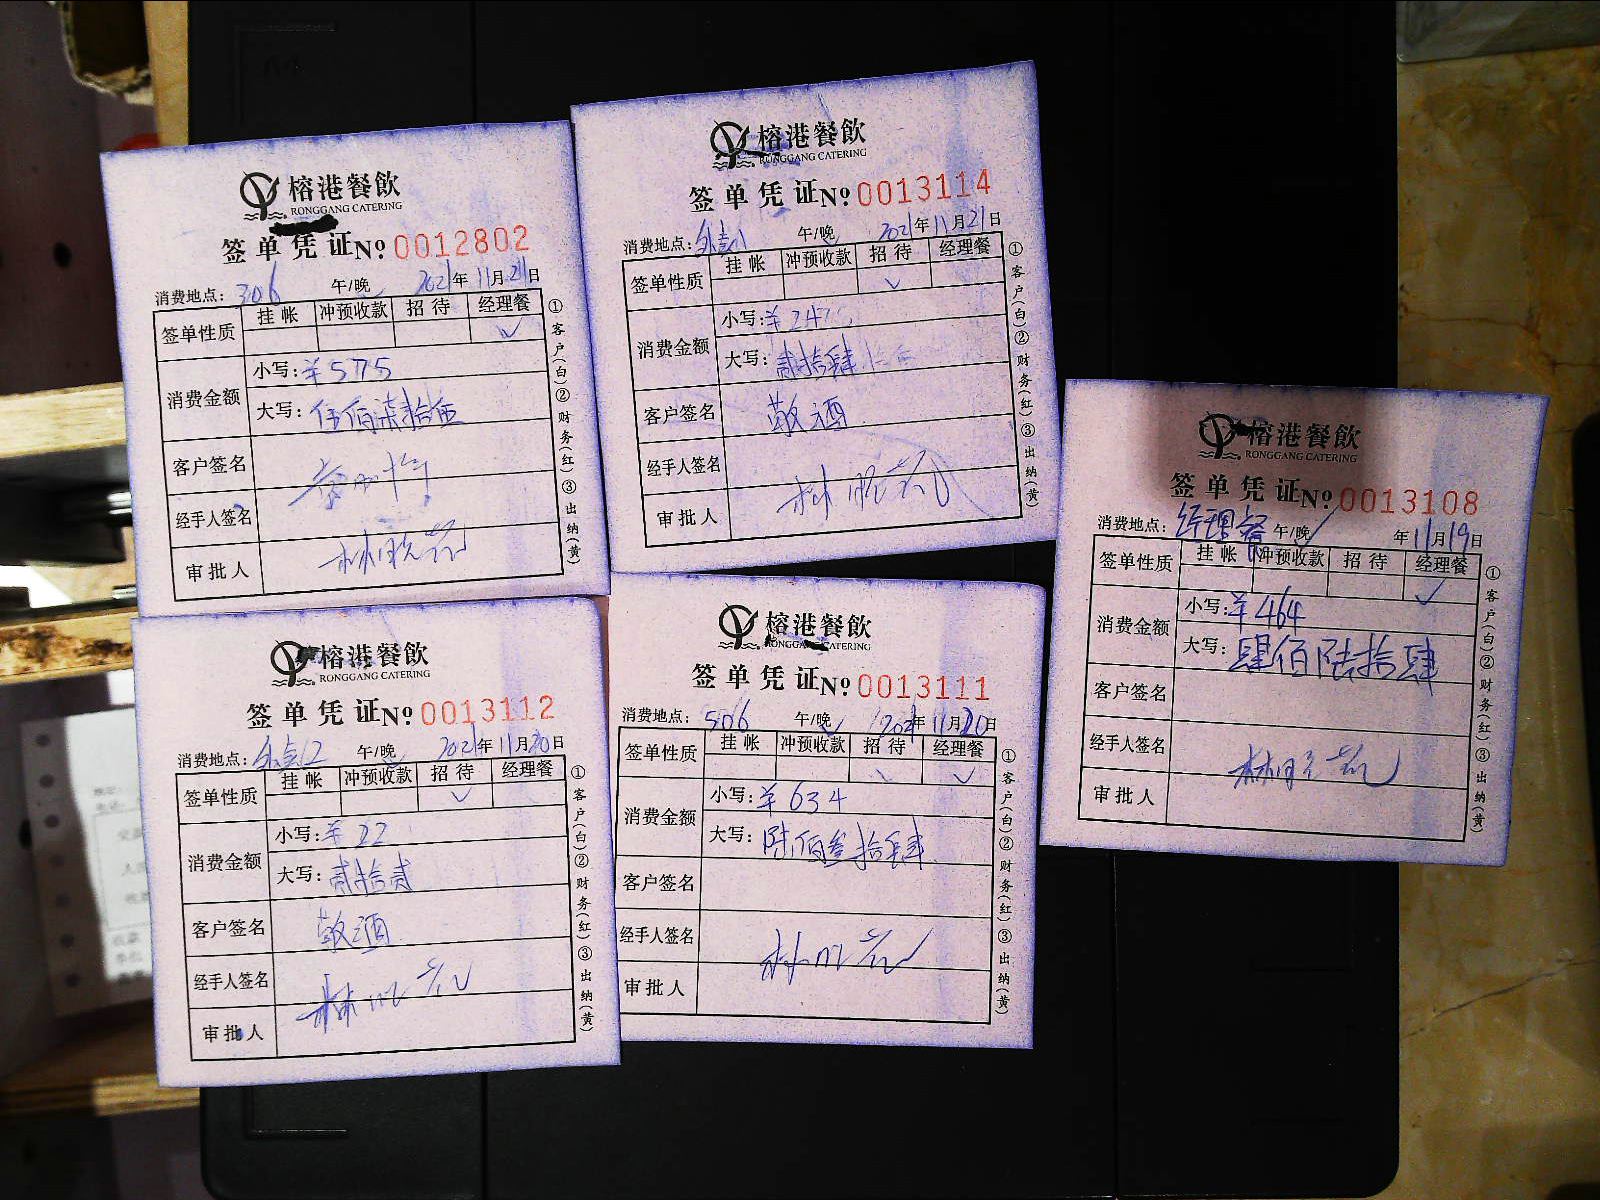 榕港餐飲
RONGGANG CATERING
签单凭证 № 0012802
消费地点: 306 午/晚 2021年11月21日
签单性质 挂帐 冲预收款 招待 经理餐
✓
消费金额 小写: ¥575
大写: 伍佰柒拾伍
客户签名
经手人签名
审批人
①客户(白)②财务(红)③出纳(黄)
榕港餐飲
RONGGANG CATERING
签单凭证 № 0013114
消费地点: 午/晚 2021年11月21日
签单性质 挂帐 冲预收款 招待 经理餐
✓
消费金额 小写: ¥24
大写: 贰拾肆
客户签名 敬酒
经手人签名
审批人
①客户(白)②财务(红)③出纳(黄)
榕港餐飲
RONGGANG CATERING
签单凭证 № 0013108
消费地点: 经理餐 午/晚 年11月19日
签单性质 挂帐 冲预收款 招待 经理餐
✓
消费金额 小写: ¥464
大写: 肆佰陆拾肆
客户签名
经手人签名
审批人
①客户(白)②财务(红)③出纳(黄)
榕港餐飲
RONGGANG CATERING
签单凭证 № 0013112
消费地点: 午/晚 2021年11月20日
签单性质 挂帐 冲预收款 招待 经理餐
✓
消费金额 小写: ¥22
大写: 贰拾贰
客户签名 敬酒
经手人签名
审批人
①客户(白)②财务(红)③出纳(黄)
榕港餐飲
RONGGANG CATERING
签单凭证 № 0013111
消费地点: 506 午/晚 2021年11月20日
签单性质 挂帐 冲预收款 招待 经理餐
✓ ✓
消费金额 小写: ¥634
大写: 陆佰叁拾肆
客户签名
经手人签名
审批人
①客户(白)②财务(红)③出纳(黄)